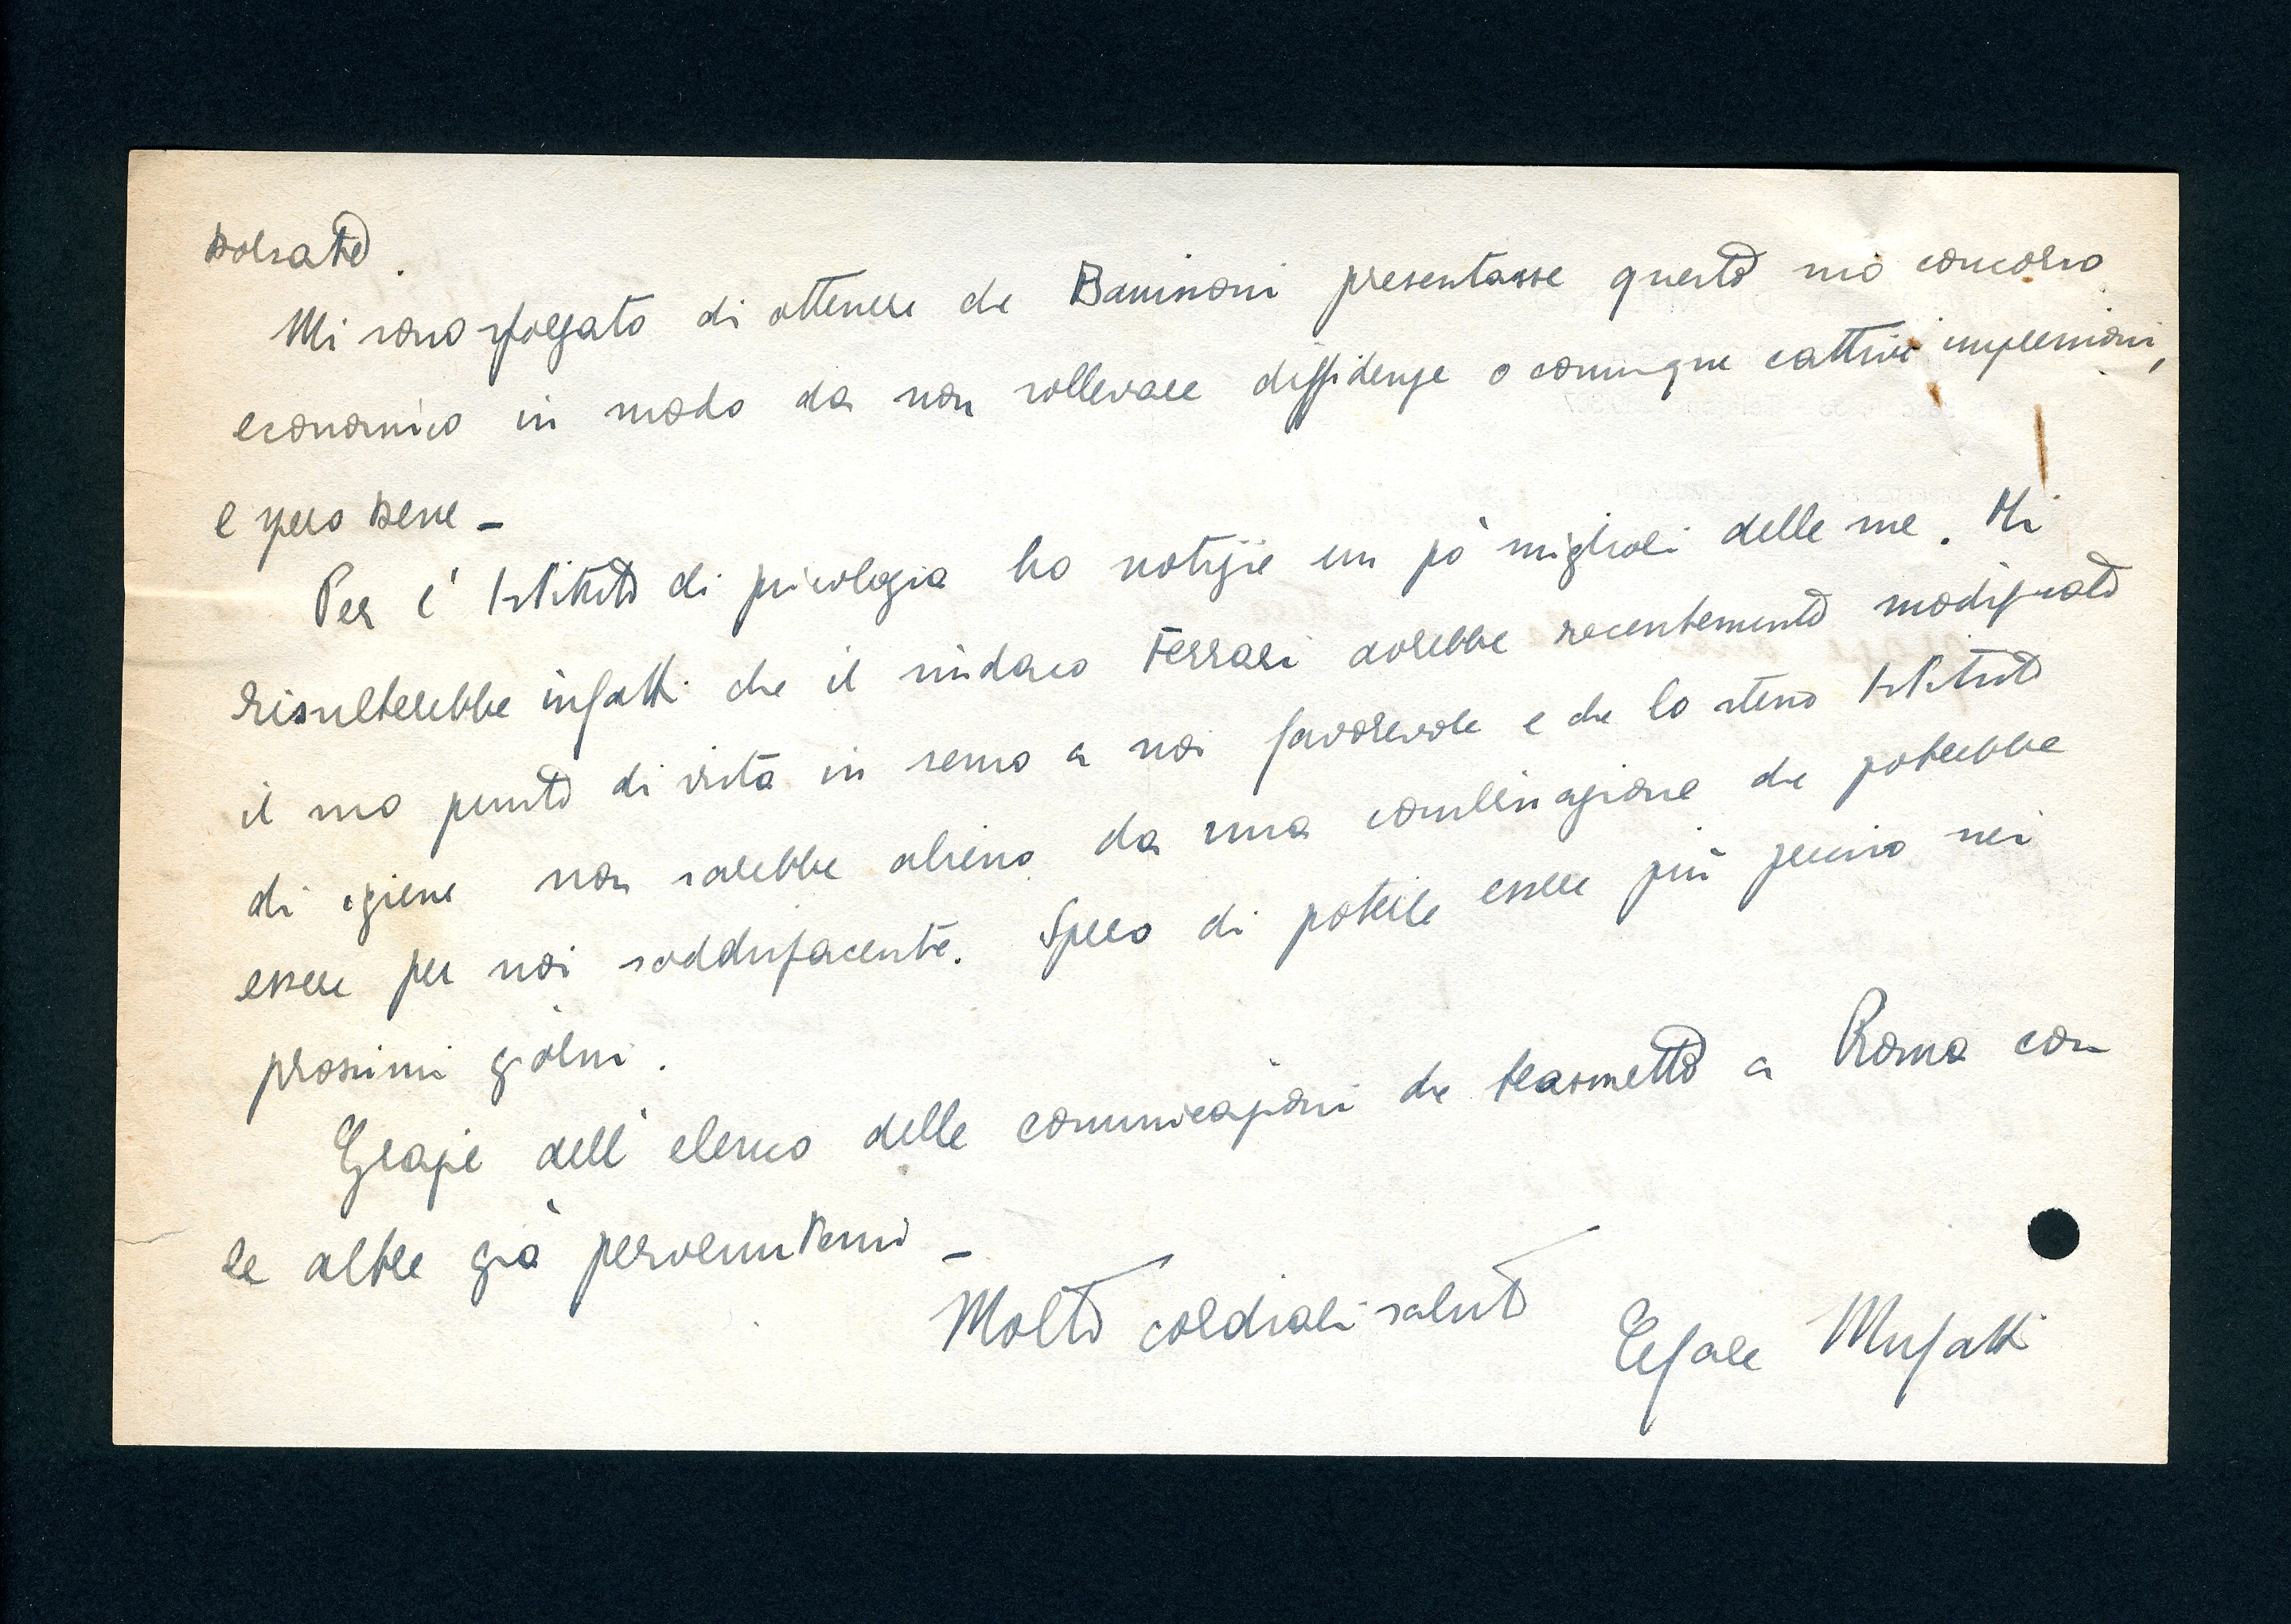 borsate.
Mi sono sforzato di ottenere che Banissoni presentasse questo mio concorso
economico in modo da non sollevare diffidenze o comunque cattive impressioni,
e spero bene -
Per l'Istituto di psicologia ho notizie un po' migliori delle sue. Mi
risulterebbe infatti che il sindaco Ferrari avrebbe recentemente modificato
il suo punto di vista in senso a noi favorevole e che lo stesso Istituto
di igiene non sarebbe alieno da una combinazione che potrebbe
essere per noi soddisfacente. Spero di poterle essere più preciso nei
prossimi giorni.
Grazie dell'elenco delle comunicazioni che trasmetto a Roma con
le altre già pervenutemi -
Molto cordiali saluti
Cesare Musatti